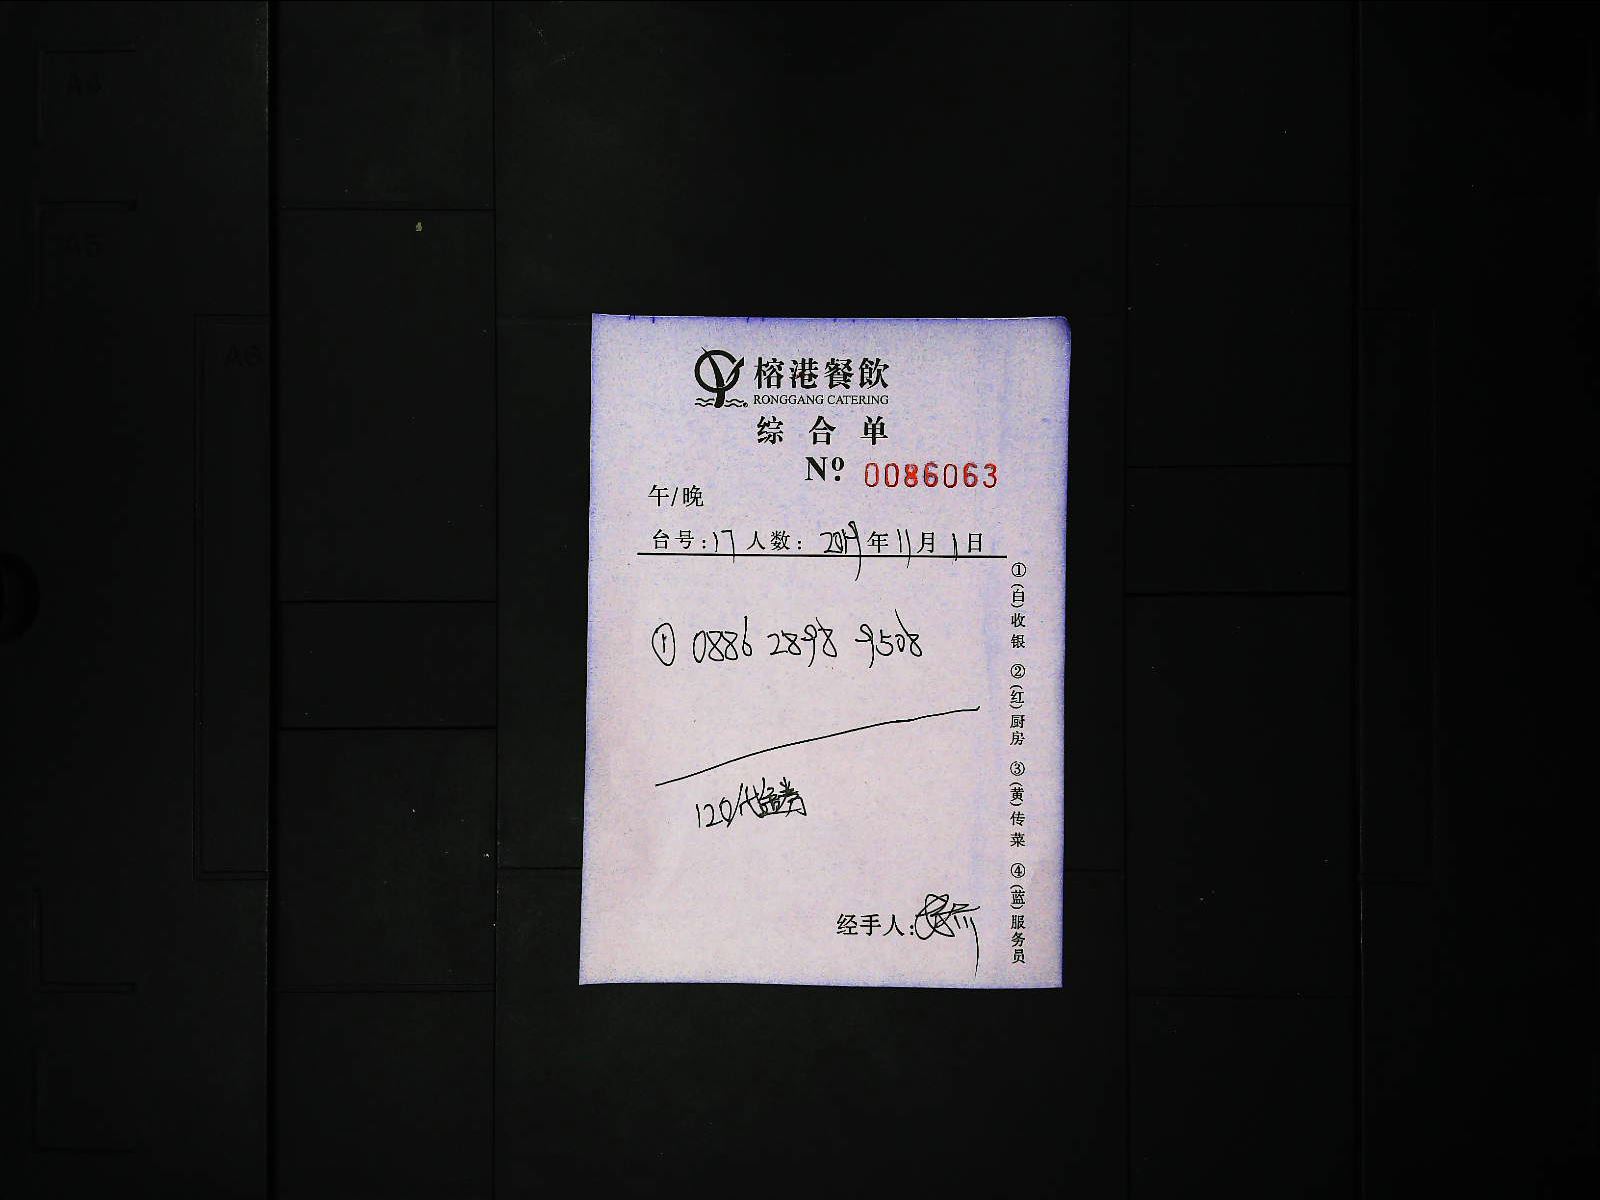 榕港餐飲
RONGGANG CATERING
综合单
Nº 0086063
午/晚
台号:17 人数: 2019年11月1日
① 0886 2898 9508
120代金券
经手人:
①(白)收银 ②(红)厨房 ③(黄)传菜 ④(蓝)服务员